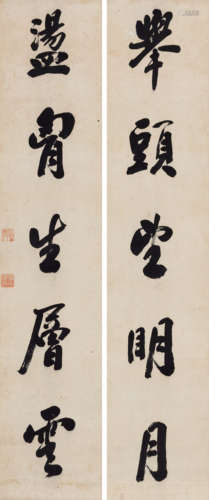 舉頭望明月
盪胷生層雲